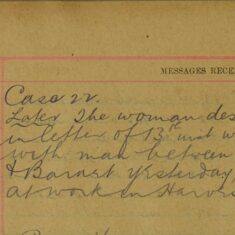 MESSAGES RECE
Case 22.
Later The woman des
in letter of 13th inst w
with man between
& Barast yesterday
at work in Harves